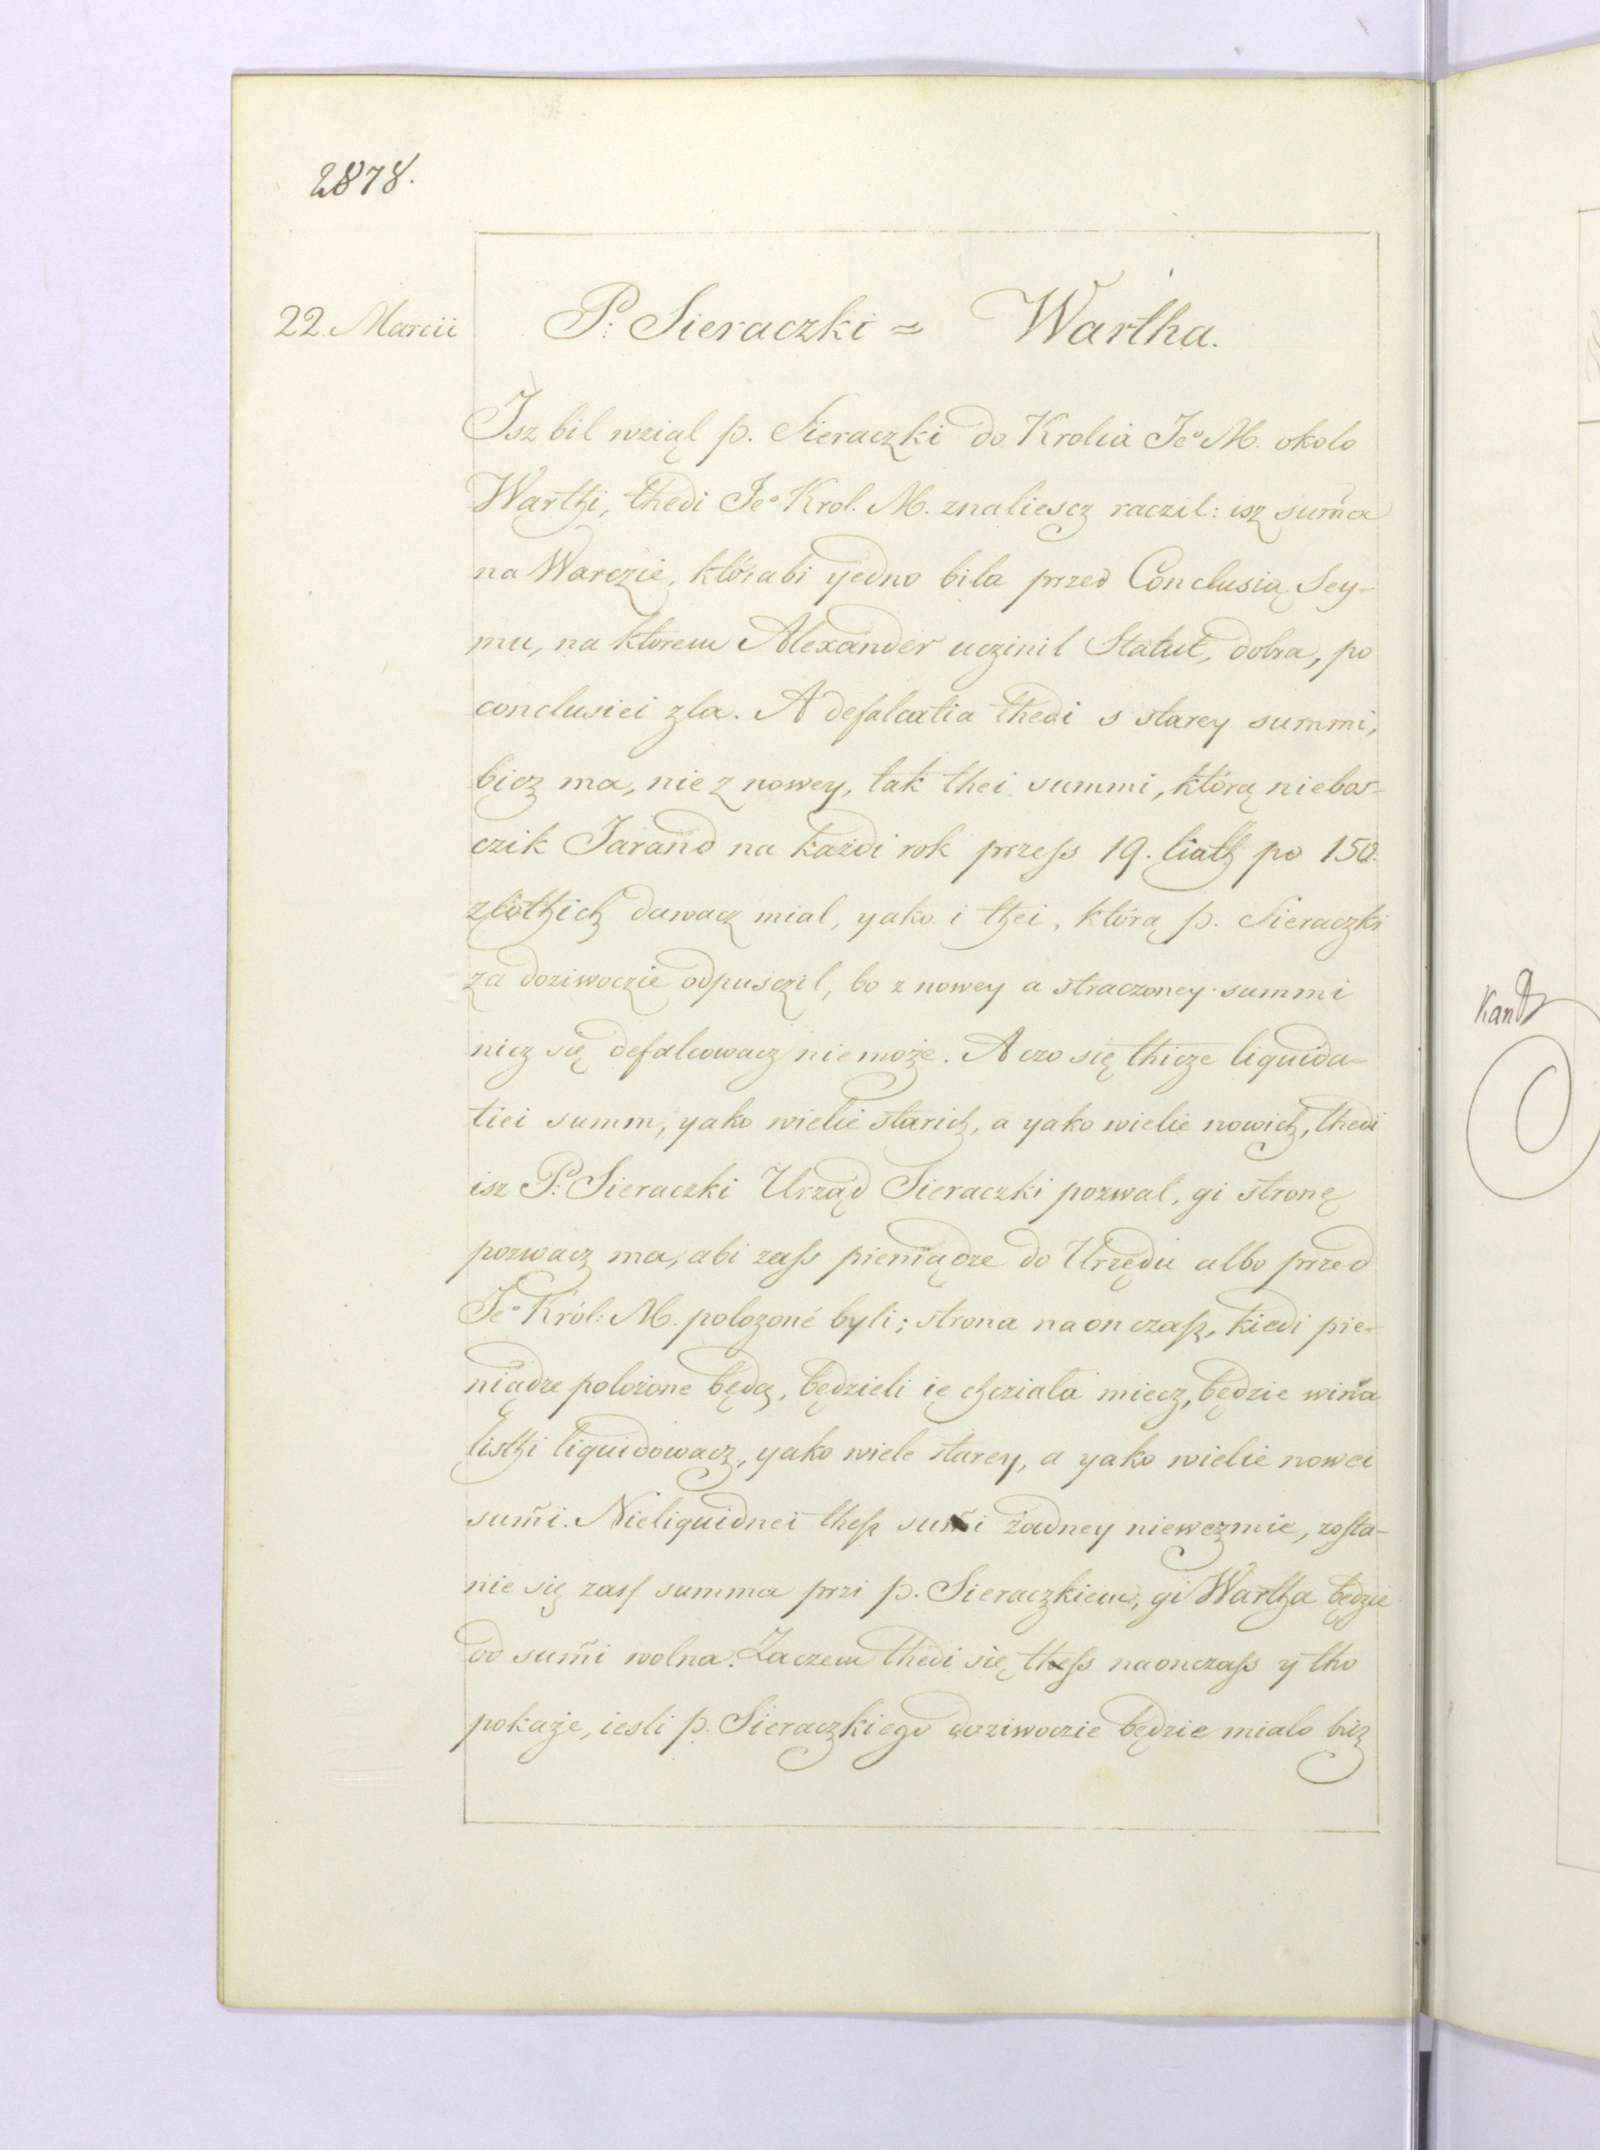 2878.
22. Marcii
P: Sieraczki = Wartha.
Isz bil wziąl p. Sieraczki do Krolia Jeº M. okolo
Warthi, thedi Jeº Krol. M. znaliescz raczil: isz sum̃a
na Warczie, którabi yedno bila przed Conclusią Sey-
mu, na ktorem Alexander uczinil Statut, dobra, po
conclusiei zla. A defalcatia thedi s starey summi,
bicz ma, nie z nowey, tak thei summi, którą niebos-
czik Jarand na każdi rok przess 19. liath po 150.
zlothich dawacz mial, yako i thei, którą p. Sieraczki
za doziwoczie odpusczil, bo z nowey a straczoney summi
nicz się defalcowacz niemoże. A czo się thicze liquida-
tiei summ, yako wielie starich, a yako wielie nowich, thedi
isz P: Sieraczki Urząd Sieraczki pozwal, gi stronę
pozwacz ma, abi zass pieniądze do Urzędu albo przed
Jeº Król: M. polozoné byli; strona na on czass, kiedi pie-
niądze polożone będą, będzieli ię chcziala miecz, będzie winna
listhi liquidowacz, yako wiele starey, a yako wielie nowei
sum̃i. Nieliquidnei thess sum̃i żadney niewezmie, zosta-
nie się zass summa przi p. Sieraczkiem, gi Wartha będzie
od sum̃i wolna. Zaczem thedi się thess naonczass y tho
pokaże, iesli p. Sieraczkiego doziwoczie będzie mialo bicz
Kand